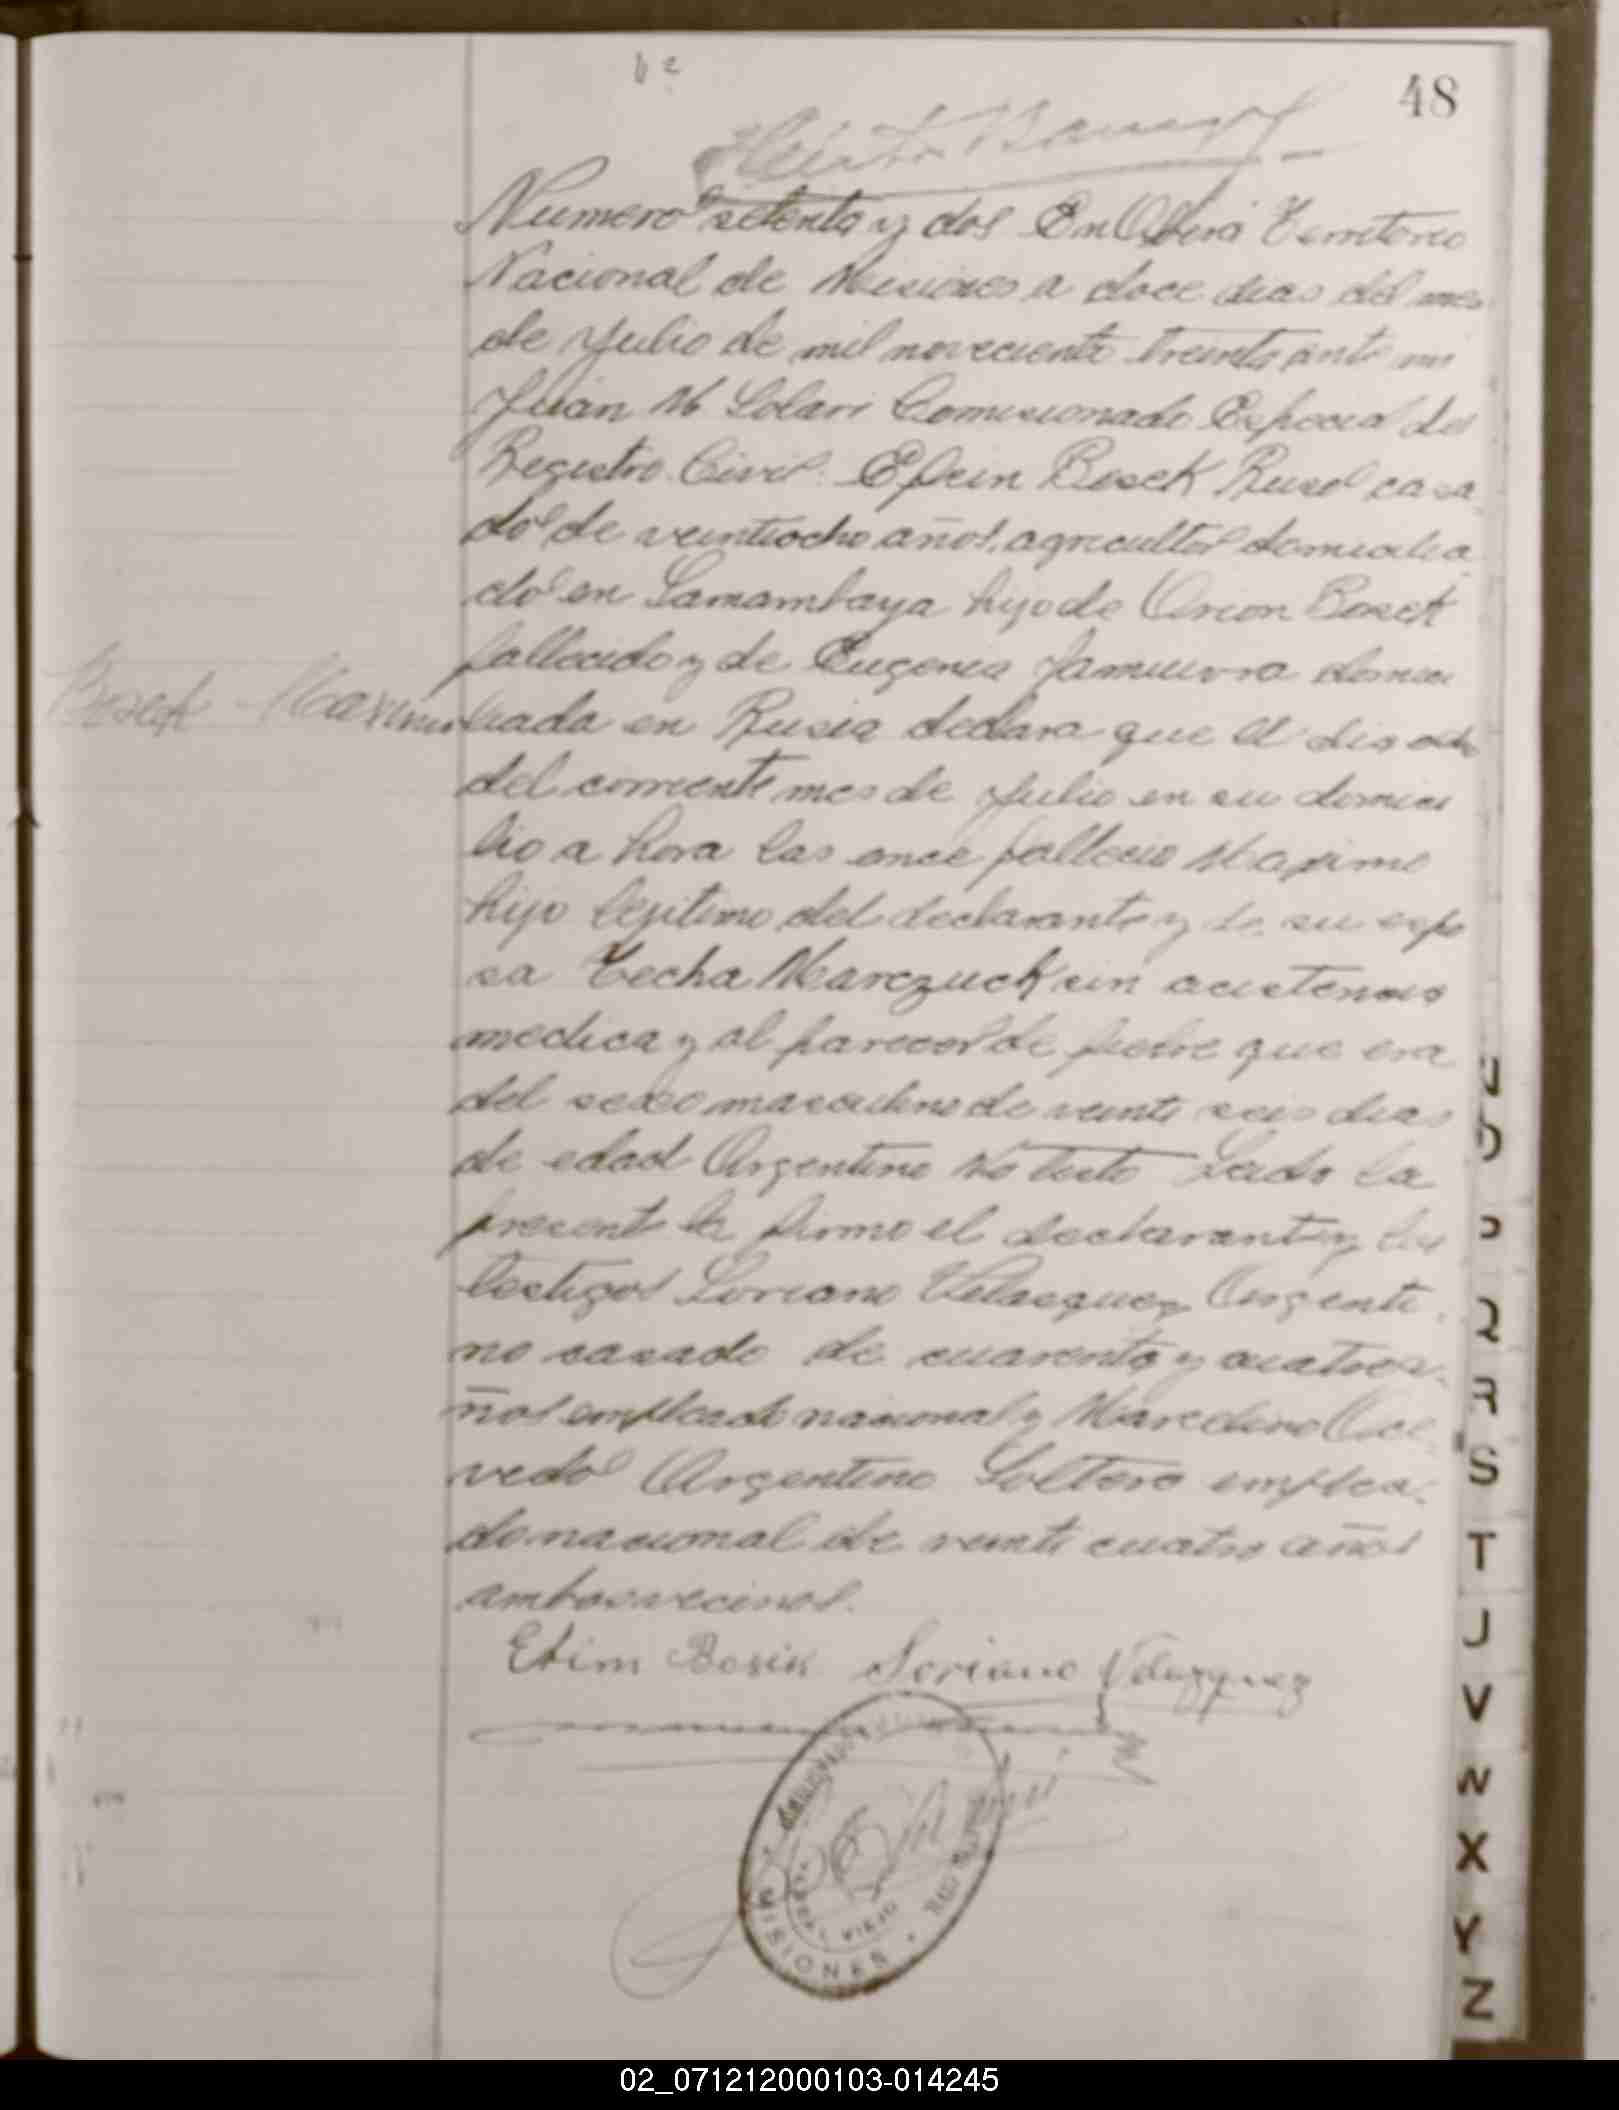 48
Numero setenta y dos En Oberá Territorio
Nacional de Misiones a doce dias del mes
de Julio de mil novecientos treinta ante mi
Juan M Solari Comisionado Especial del
Registro Civil Efrin Bosek Ruso casa
do de veintiocho años, agricultor domicilia
do en Samambaya hijo de Bosek
fallecido y de Eugenia domici
Bosek Maximo
liada en Rusia declara que el dia ocho
del corriente mes de Julio en su domici
lio a hora las once fallecio Maximo
hijo legitimo del declarante y de su espo
sa Techa Marczuck sin acistencia
medica y al parecer de fiebre que era
del sexo masculino de veinte seis dias
de edad Argentino No testo Leido la
presente la firmo el declarante y los
testigos Soriano Velasquez Argenti
no casado de cuarenta y cuatro a
ños empleado nacional y Marcelino Ace
vedo Argentino Soltero emplea
do nacional de veinte cuatro años
ambos vecinos.
Efim Bosik Soriano Velazquez
MISIONES
R
S
T
V
W
X
Y
Z
02_071212000103-014245